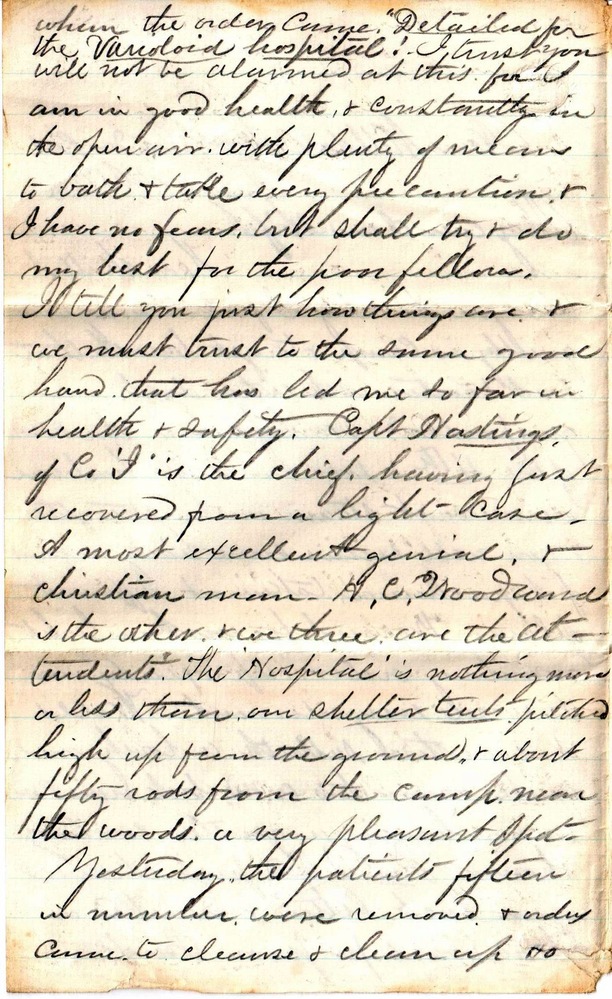 when the order came. "Detailed for
the Varioloid hospital"! I trust you
will not be alarmed at this. for I
am in good health, & constantly in
the open air. with plenty of means
to bath & take every precaution. &
I have no fears, but shall try & do
my best for the poor fellows.
I tell you just how things are. &
we must trust to the same good
hand. that has led me so far in
health & safety. Capt Hastings,
of Co 'I' is the chief. having just
recovered from a light case -
A most excellent genial. &
christian man - H. C. Woodward
is the other. & we three are the "at-
tendents". The 'Hospital' is nothing more
or less than our shelter tents pitched
high up from the ground, & about
fifty rods from the camp. near
the woods. a very pleasant spot -
Yesterday. the patients fifteen
in number. were removed. & orders
came to cleanse & clean up so